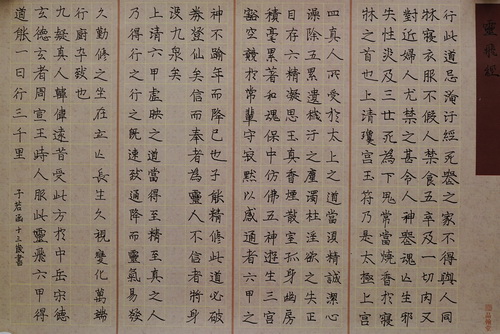 靈飛經
行此道忌淹汙經死喪之家不得與人同
牀寢衣服不假人禁食五辛及一切肉又
對近婦人尤禁之甚令人神喪魂亡生邪
失性災及三世死為下鬼常當燒香於寢
牀之首也上清瓊宮玉符乃是太極上宮
四真人所受於太上之道當須精誠潔心
澡除五累遺穢汙之塵濁杜淫欲之失正
目存六精凝思玉真香煙散室孤身幽房
積毫累著和魂保中仿佛五神遊生三宮
豁空競於常輩守寂默以感通者六甲之
神不踰年而降已也子能精修此道必破
券登仙矣信而奉者為靈人不信者將身
沒九泉矣
上清六甲虛映之道當得至精至真之人
乃得行之行之既速致通降而靈氣易發
久勤修之坐在立亡長生久視變化萬端
行廚卒致也
九疑真人韓偉遠昔受此方於中岳宋德
玄德玄者周宣王時人服此靈飛六甲得
道能一日行三千里 于若函 十三歲書